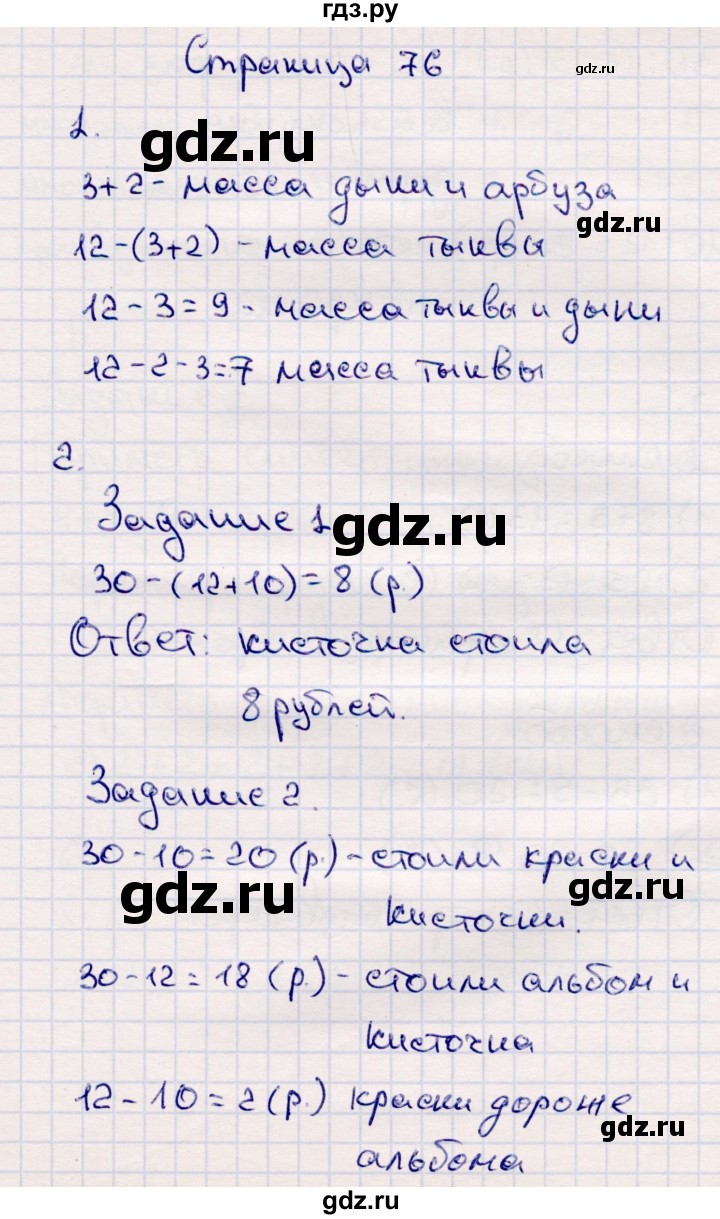 гдз.ру
Страница 76
gdz.ru
1.
gdz.ru
3+2 - масса дыни и арбуза
gdz.ru
12-(3+2) - масса тыквы
12-3=9 - масса тыквы и дыни
12-2-3=7 масса тыквы
2.
Задание 1
gdz.ru
30-(12+10)=8 (р.)
Ответ: кисточка стоила
8 рублей.
Задание 2.
30-10=20 (р.) - стоили краски и
gdz.ru
gdz.ru
кисточки.
30-12=18 (р.) - стоили альбом и
кисточка
12-10=2(р.) краски дороже
gdz.ru
альбома
gdz.ru